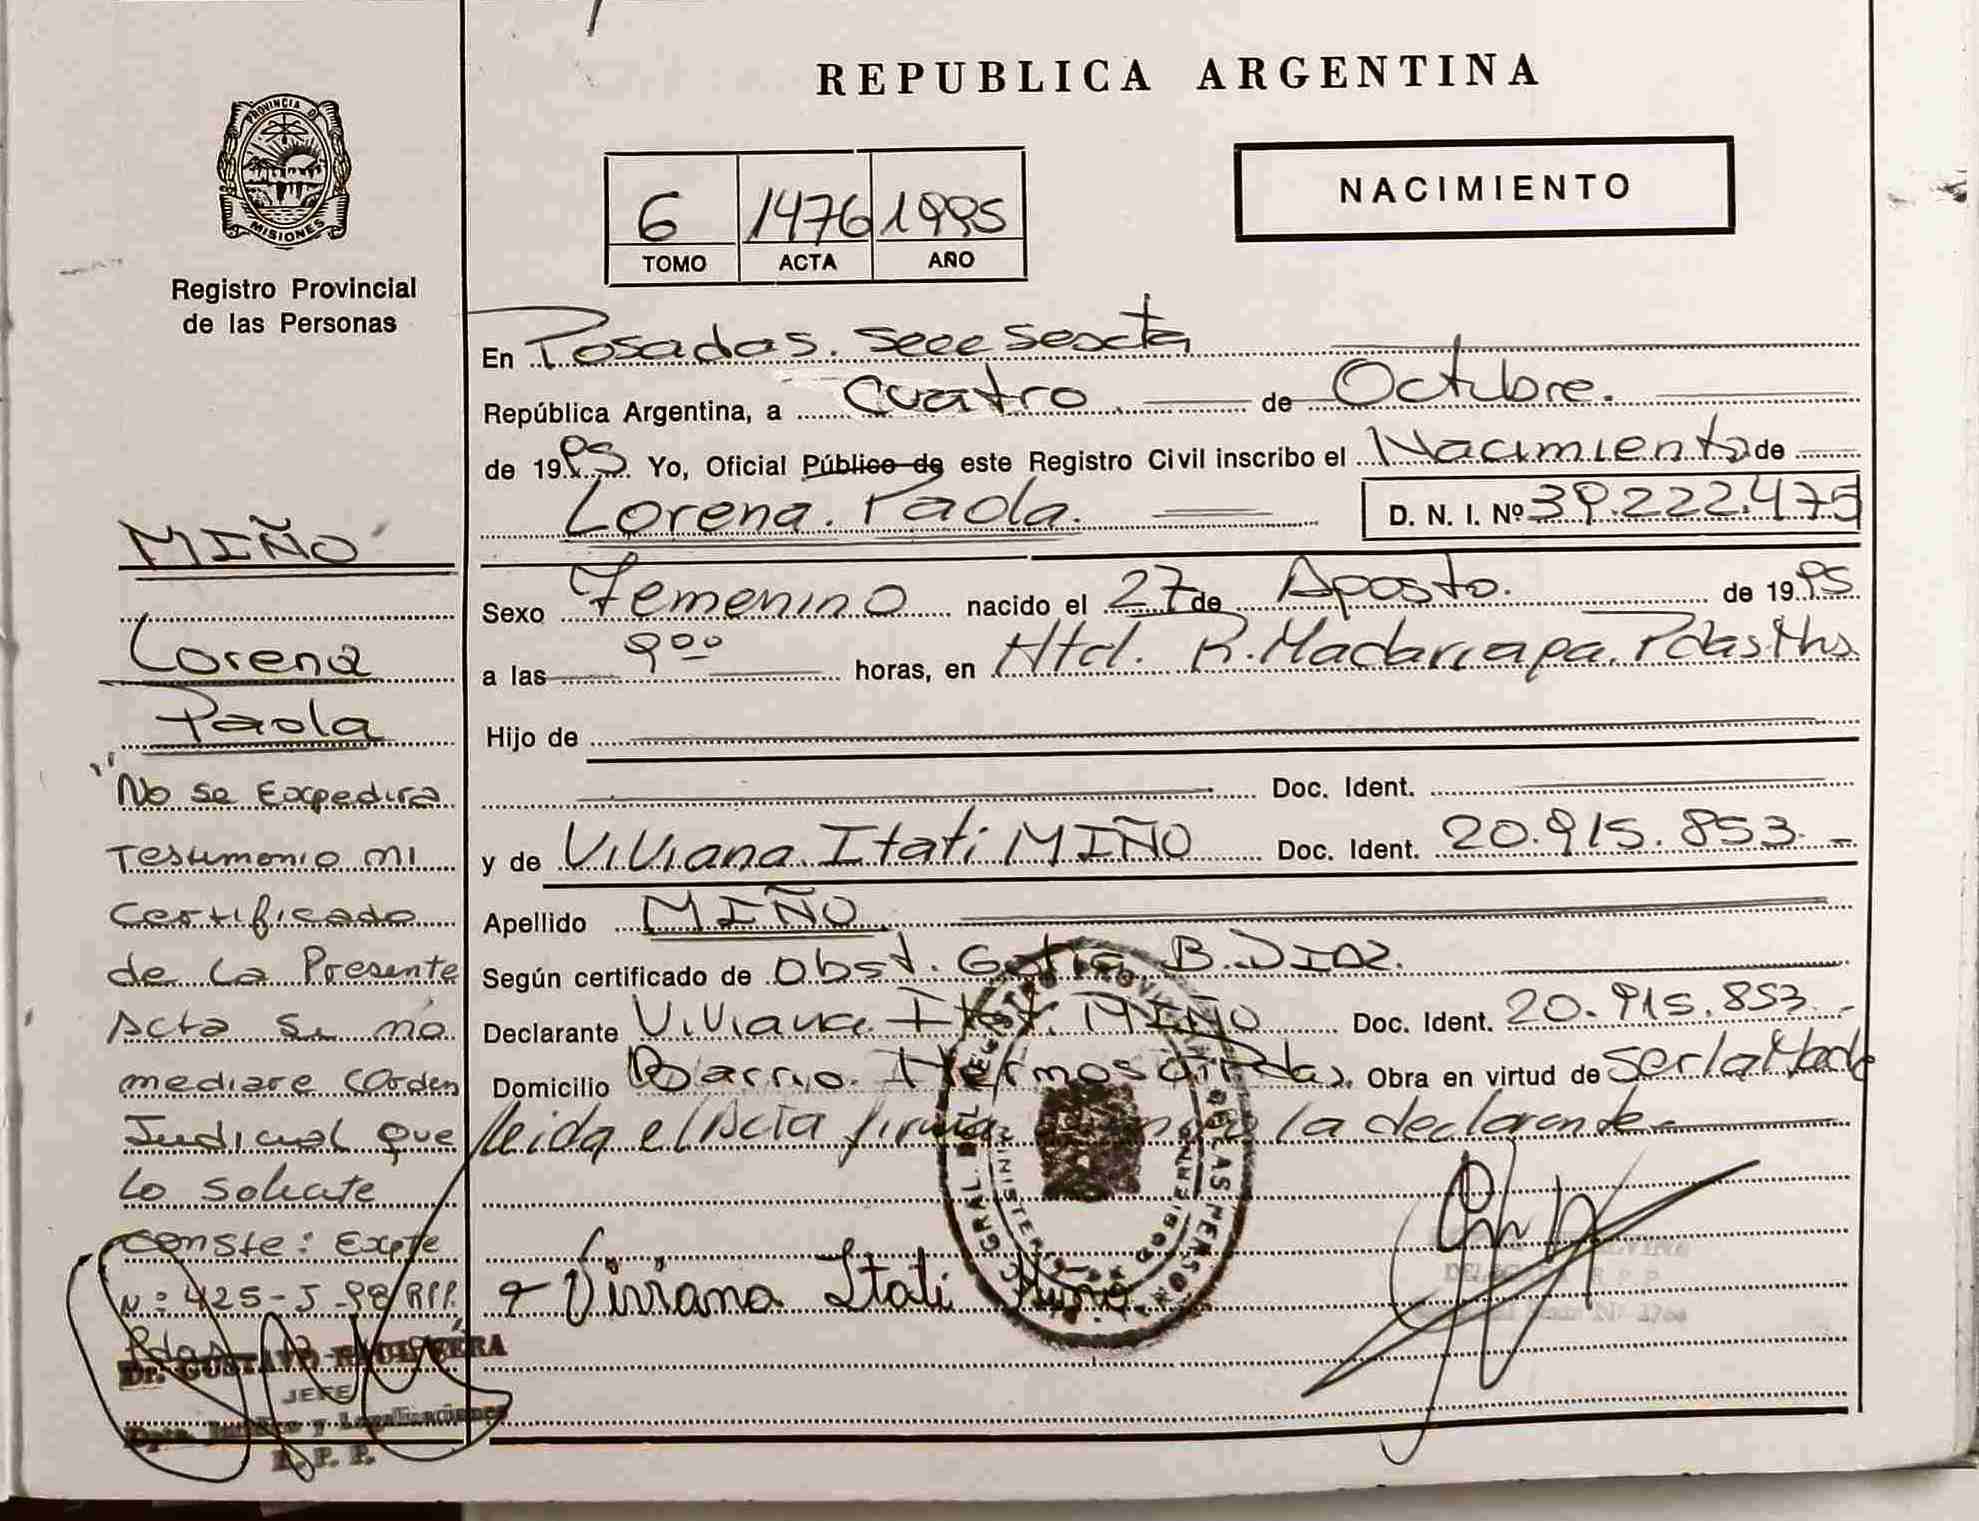 PROVINCIA DE
MISIONES
Registro Provincial
de las Personas
MIÑO
Lorena
Paola
"No se Expedira
Testimonio ni
Certificado
de La Presente
Acta Si no
mediare Orden
Judicial que
Lo solicite
conste: Expte
N.º 425-J-98 RPP.
Pdas
Dr. GUSTAVO
JEFE
Dpto. y Legalizaciones
R. P. P.
REPUBLICA ARGENTINA
6 1476 1995
TOMO ACTA AÑO
NACIMIENTO
En Posadas. Secc Sexta
República Argentina, a Cuatro de Octubre.
de 1995. Yo, Oficial Público de este Registro Civil inscribo el Nacimiento de
Lorena. Paola. D. N. I. Nº 39.222.475
Sexo Femenino nacido el 27 de Agosto. de 1995
a las 9⁰⁰ horas, en Htal. R. Madariaga. Pdas Mns.
Hijo de
Doc. Ident.
y de Viviana Itati MIÑO Doc. Ident. 20.915.853.-
Apellido MIÑO
Según certificado de Obst. B. DIAZ.
Declarante Viviana Itati MIÑO Doc. Ident. 20.915.853.-
Domicilio Barrio. Pdas. Obra en virtud de ser la Madre
leida el Acta firma la declarante-
Viviana Itati Miño